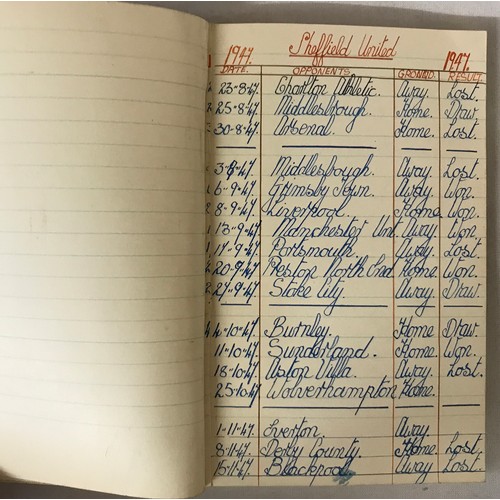 1947. Sheffield United 1947.
DATE. OPPONENTS. GROUND. RESULT.
23-8-47. Charlton Athletic. Away. Lost.
25-8-47. Middlesbrough. Home. Draw.
30-8-47. Arsenal. Home. Lost.
3-9-47. Middlesbrough. Away. Lost.
6-9-47. Grimsby Town. Away. Won.
8-9-47. Liverpool. Home. Won.
13-9-47. Manchester Unt. Away. Won.
17-9-47. Portsmouth. Away. Lost.
20-9-47. Preston North End Home. Won.
27-9-47. Stoke City. Away. Draw.
4-10-47. Burnley. Home. Draw.
11-10-47. Sunderland. Home. Won.
18-10-47. Aston Villa. Away. Lost.
25-10-47 Wolverhampton Home.
1-11-47. Everton. Away.
8-11-47. Derby County. Home. Lost.
15-11-47. Blackpool Away. Lost